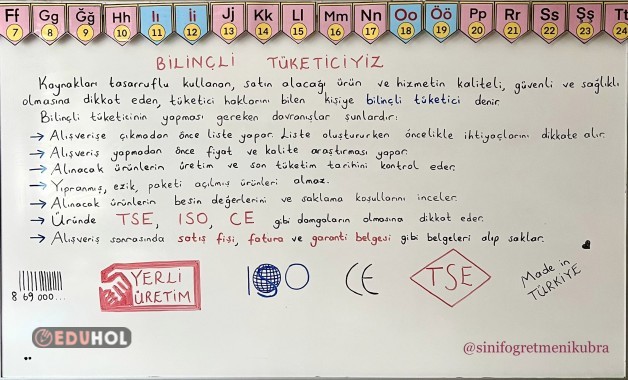 Ff Gg Ğğ Hh Iı İi Jj Kk Ll Mm Nn Oo Öö Pp Rr Ss Şş Tt
7 8 9 10 11 12 13 14 15 16 17 18 19 20 21 22 23 24
BİLİNÇLİ TÜKETİCİYİZ
Kaynakları tasarruflu kullanan, satın alacağı ürün ve hizmetin kaliteli, güvenli ve sağlıklı
olmasına dikkat eden, tüketici haklarını bilen kişiye bilinçli tüketici denir.
Bilinçli tüketicinin yapması gereken davranışlar şunlardır:
→ Alışverişe çıkmadan önce liste yapar. Liste oluştururken öncelikle ihtiyaçlarını dikkate alır.
→ Alışveriş yapmadan önce fiyat ve kalite araştırması yapar.
→ Alınacak ürünlerin üretim ve son tüketim tarihini kontrol eder.
→ Yıpranmış, ezik, paketi açılmış ürünleri almaz.
→ Alınacak ürünlerin besin değerlerini ve saklama koşullarını inceler.
→ Üründe TSE, ISO, CE gibi damgaların olmasına dikkat eder.
→ Alışveriş sonrasında satış fişi, fatura ve garanti belgesi gibi belgeleri alıp saklar.
8 69 000...
YERLİ
ÜRETİM
ISO
CE
TSE
Made in
TÜRKİYE
EDUHOL
@sinifogretmenikubra